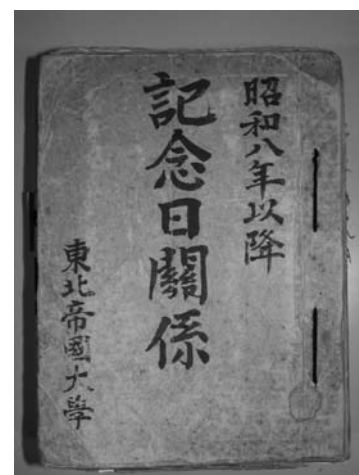 昭和八年以降
記念日關係
東北帝國大學